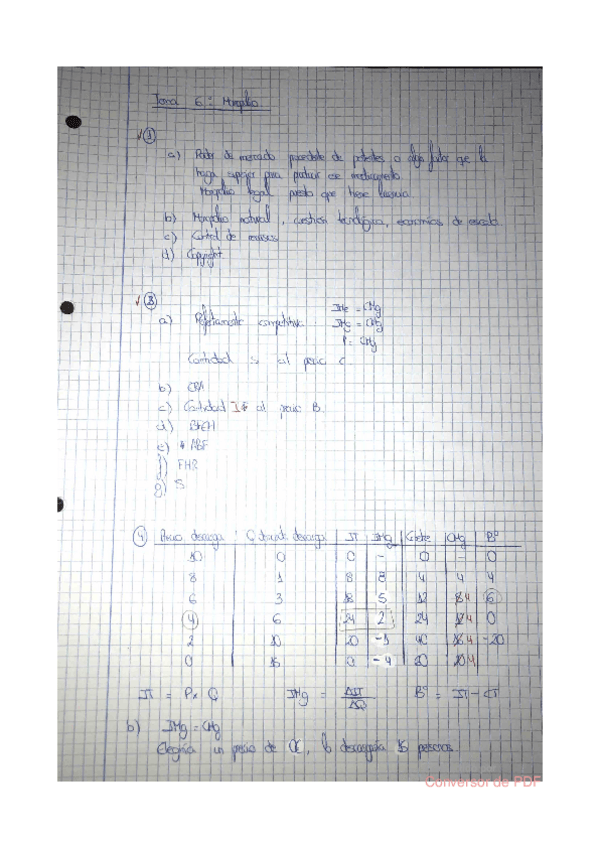 Tema 6: Monopolio.
①
a) Poder de mercado procedente de patentes o algo que la
haga superior para producir ese medicamento.
Monopolio legal puesto que tiene licencia.
b) Monopolio natural, cuestión tecnológica, economías de escala.
c) Control de recursos
d) Copyright
③
a) Perfectamente competitivo IMe = CMg
IMg = CMg
P = CMg
Cantidad S al precio C.
b) CRA
c) Cantidad I al precio B.
d)
e) ABF
f) FHR
g) S
④ Precio descarga Q descarga IT IMg Coste CMg Bº
10 0 0 - 0 - 0
8 1 8 8 4 4 4
6 3 18 5 12 4 6
4 6 24 2 24 4 0
2 10 20 -1 40 4 -20
0 15 0 -4 4
IT = P x Q IMg = ΔIT/ΔQ Bº = IT - CT
b) IMg = CMg
Elegiría un precio de 0€, lo descargaría 15 personas.
Conversor de PDF